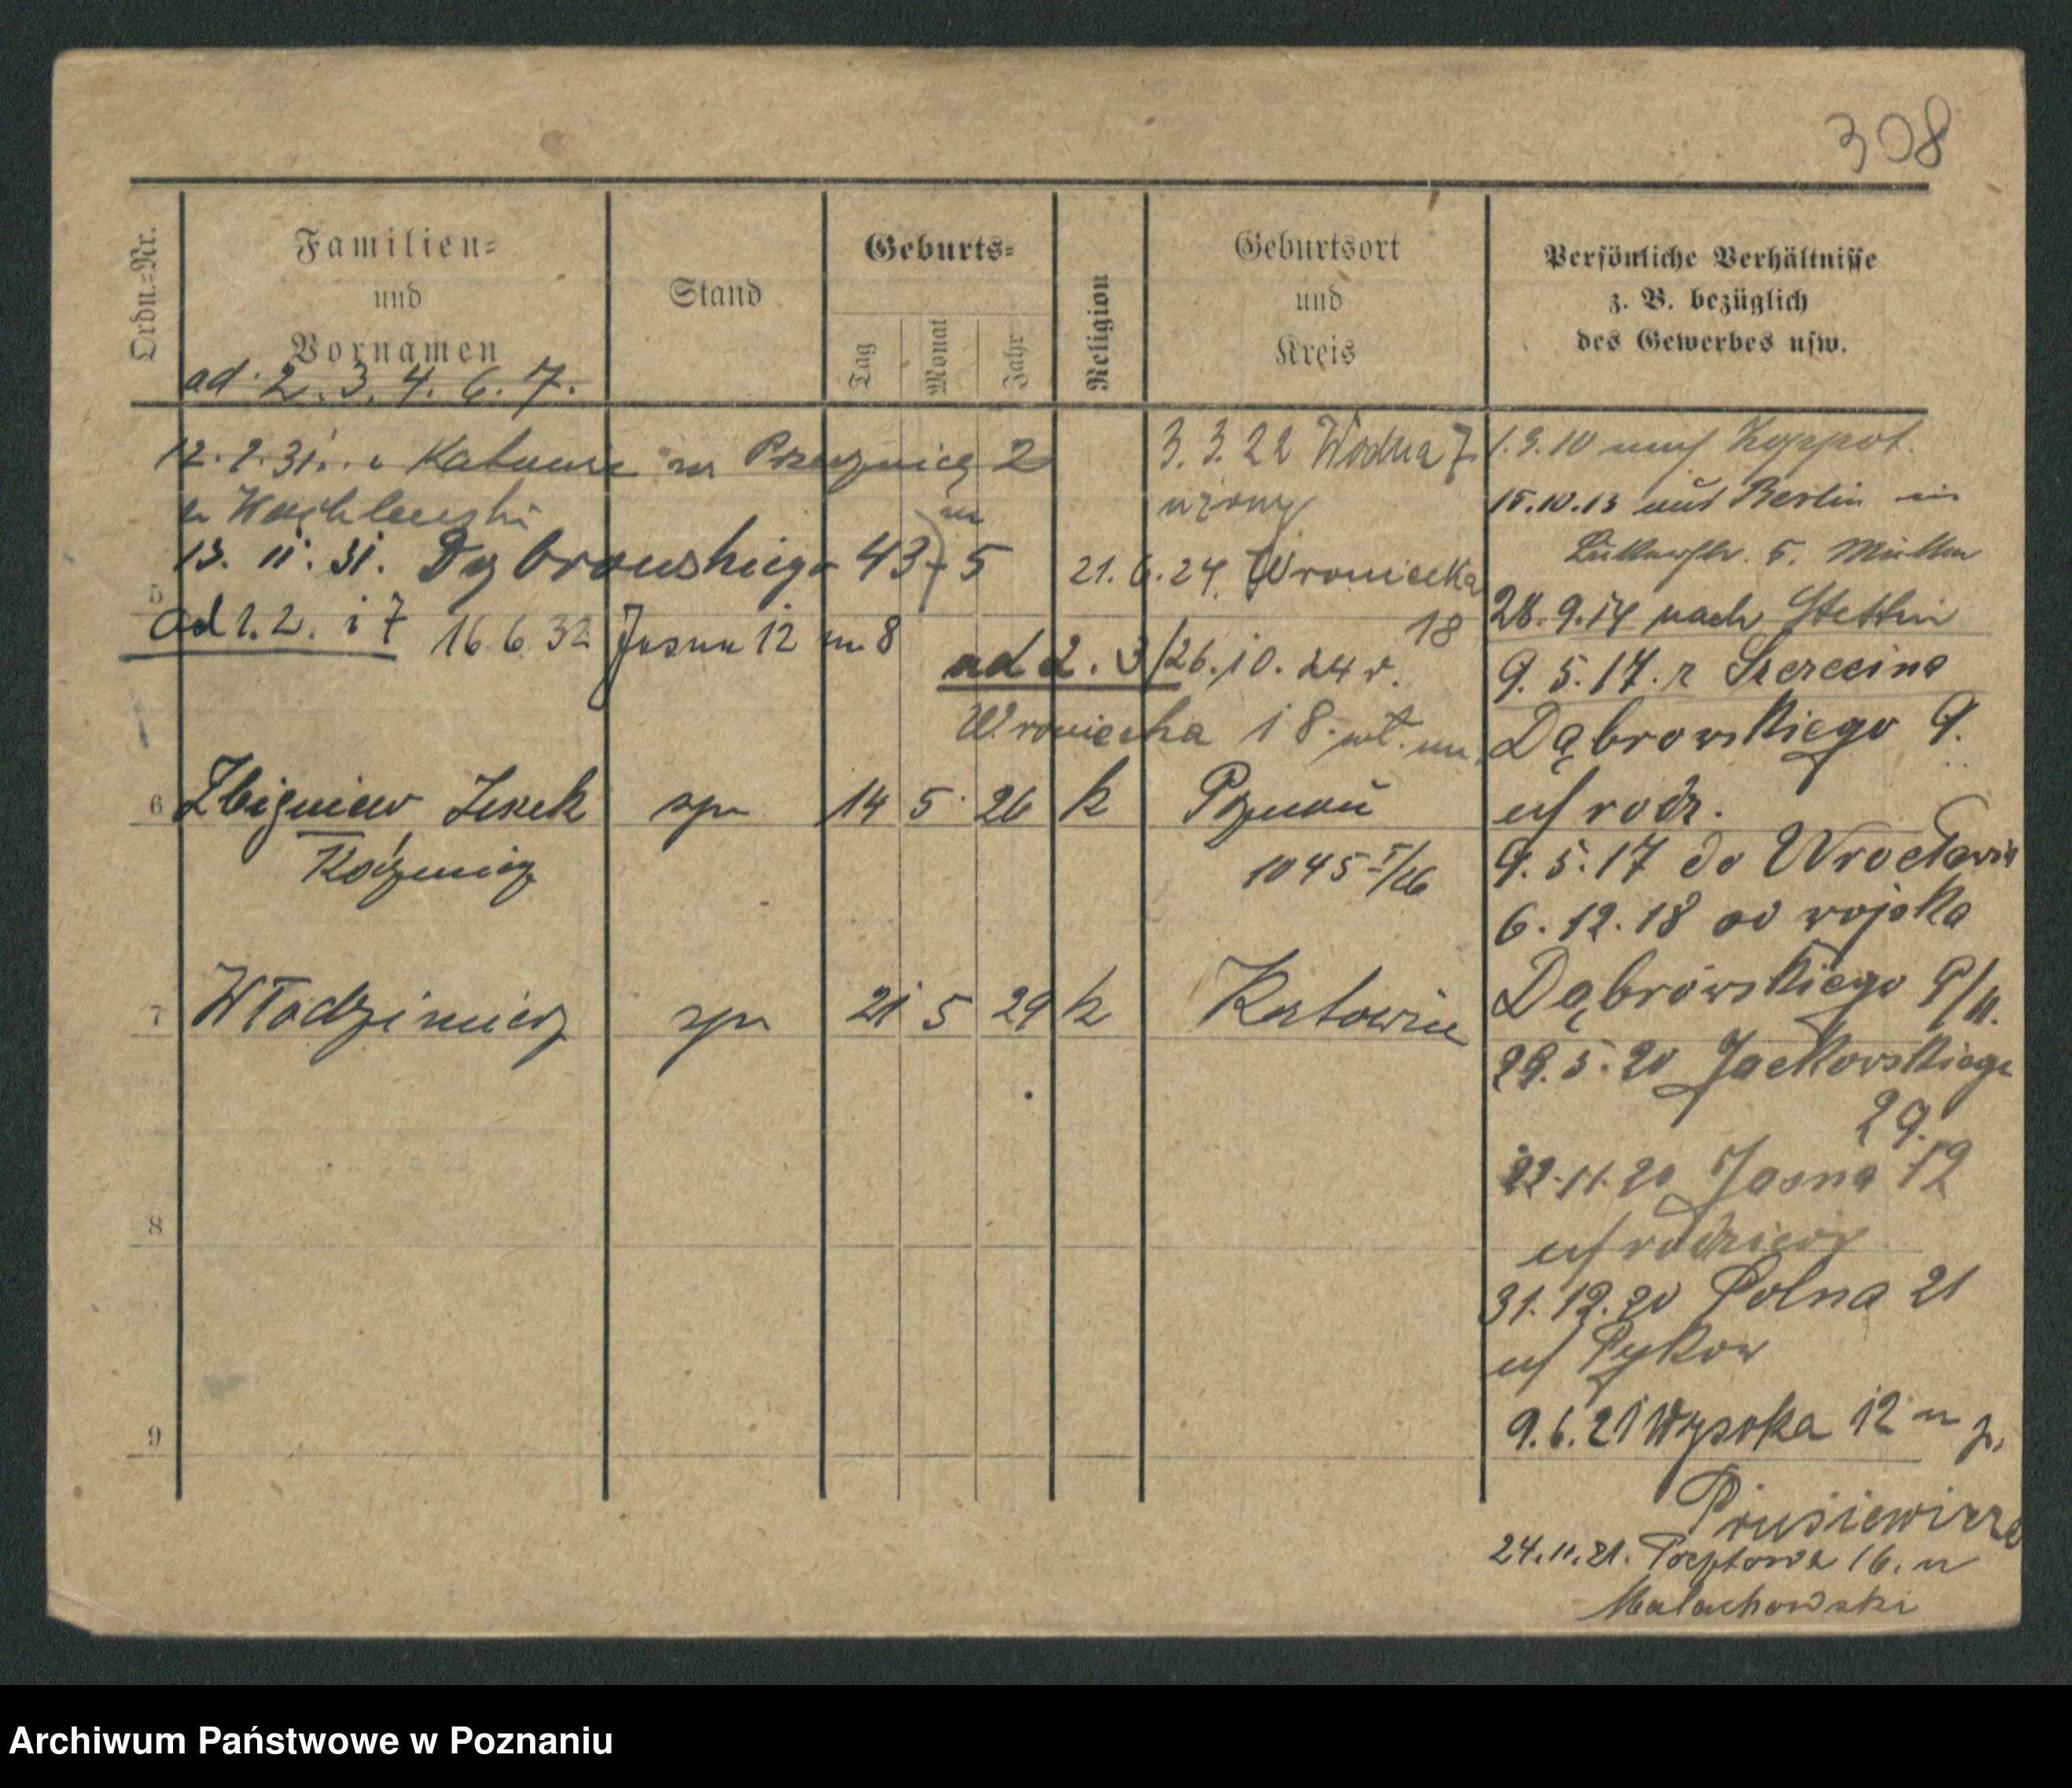 308
Ordn.=Nr.
Familien=
und
Vornamen
Stand
Geburts=
Tag
Monat
Jahr
Religion
Geburtsort
und
Kreis
Persönliche Verhältnisse
z. B. bezüglich
des Gewerbes usw.
ad. 2. 3. 4. 6. 7.
31. Katowic na 2
13. 11. 31. Dąbrowskiego 43 m 5
5
ad 1. 2. i 7 16 6 32 Jasna 12 m 8
3. 3. 22 Wodna 7
u żony
21. 6. 24. Wroniecka
18
ad 2. 3/26. 10. 24 r.
Wroniecka 18.
6 Zbigniew
Kaźmierz
14 5 26 k Poznań
1045 /26
7 Włodzimierz 21 5 29 k Katowice
8
9
1.3.10 Zoppot.
15.10.13 aus Berlin in
5. Müller
28. 9. 14 nach Stettin
9. 5. 17. z Szczecina
Dąbrowskiego 9.
u/ rodz.
9. 5. 17 do Wrocławia
6. 12. 18 od wojska
Dąbrowskiego 9/11.
29. 5. 20 Jackowskiego
29.
22. 11. 20 Jasna 12
u/ rodziców
31. 12. 20 Polna 21
u/
9. 6. 21 Wysoka 12 u p.
Prusiewicza
24. 11. 21. Pocztowa 16. u
Małachowski
Archiwum Państwowe w Poznaniu